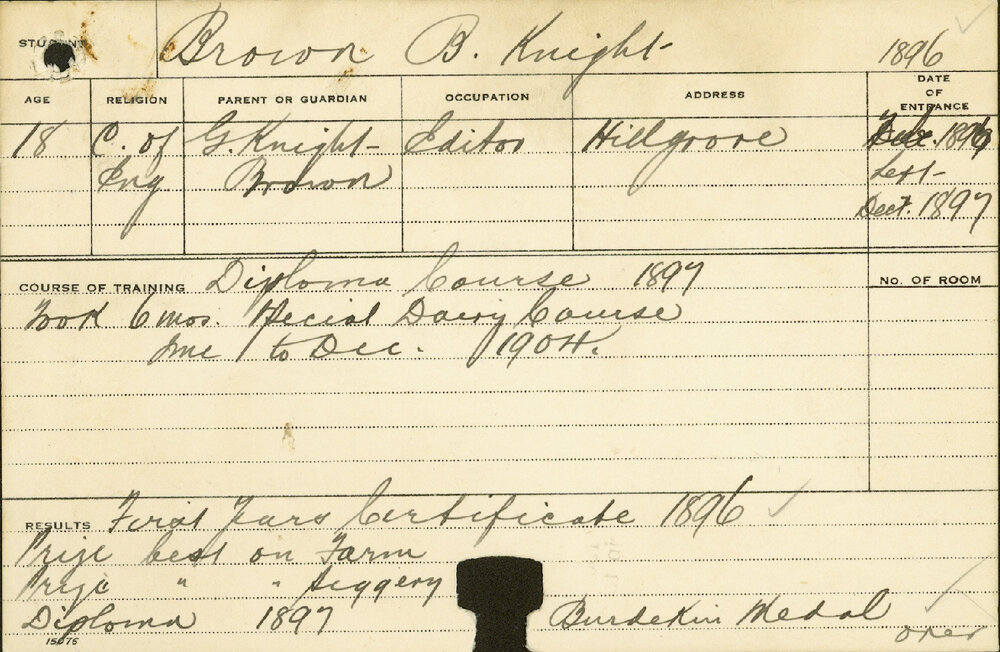 STUDENT Brown B. Knight- 1896
AGE RELIGION PARENT OR GUARDIAN OCCUPATION ADDRESS DATE OF ENTRANCE
18 C. of G. Knight- Editor Hillgrove 1896
Eng Brown Left-
Dect. 1897
COURSE OF TRAINING Diploma Course 1897 No. OF ROOM
Took 6 mos. Special Dairy Course
June 1 to Dec. 1904.
RESULTS First Years Certificate 1896
Prize best on Farm
Prize " " Piggery
Diploma 1897 Burdekin Medal
15076 over